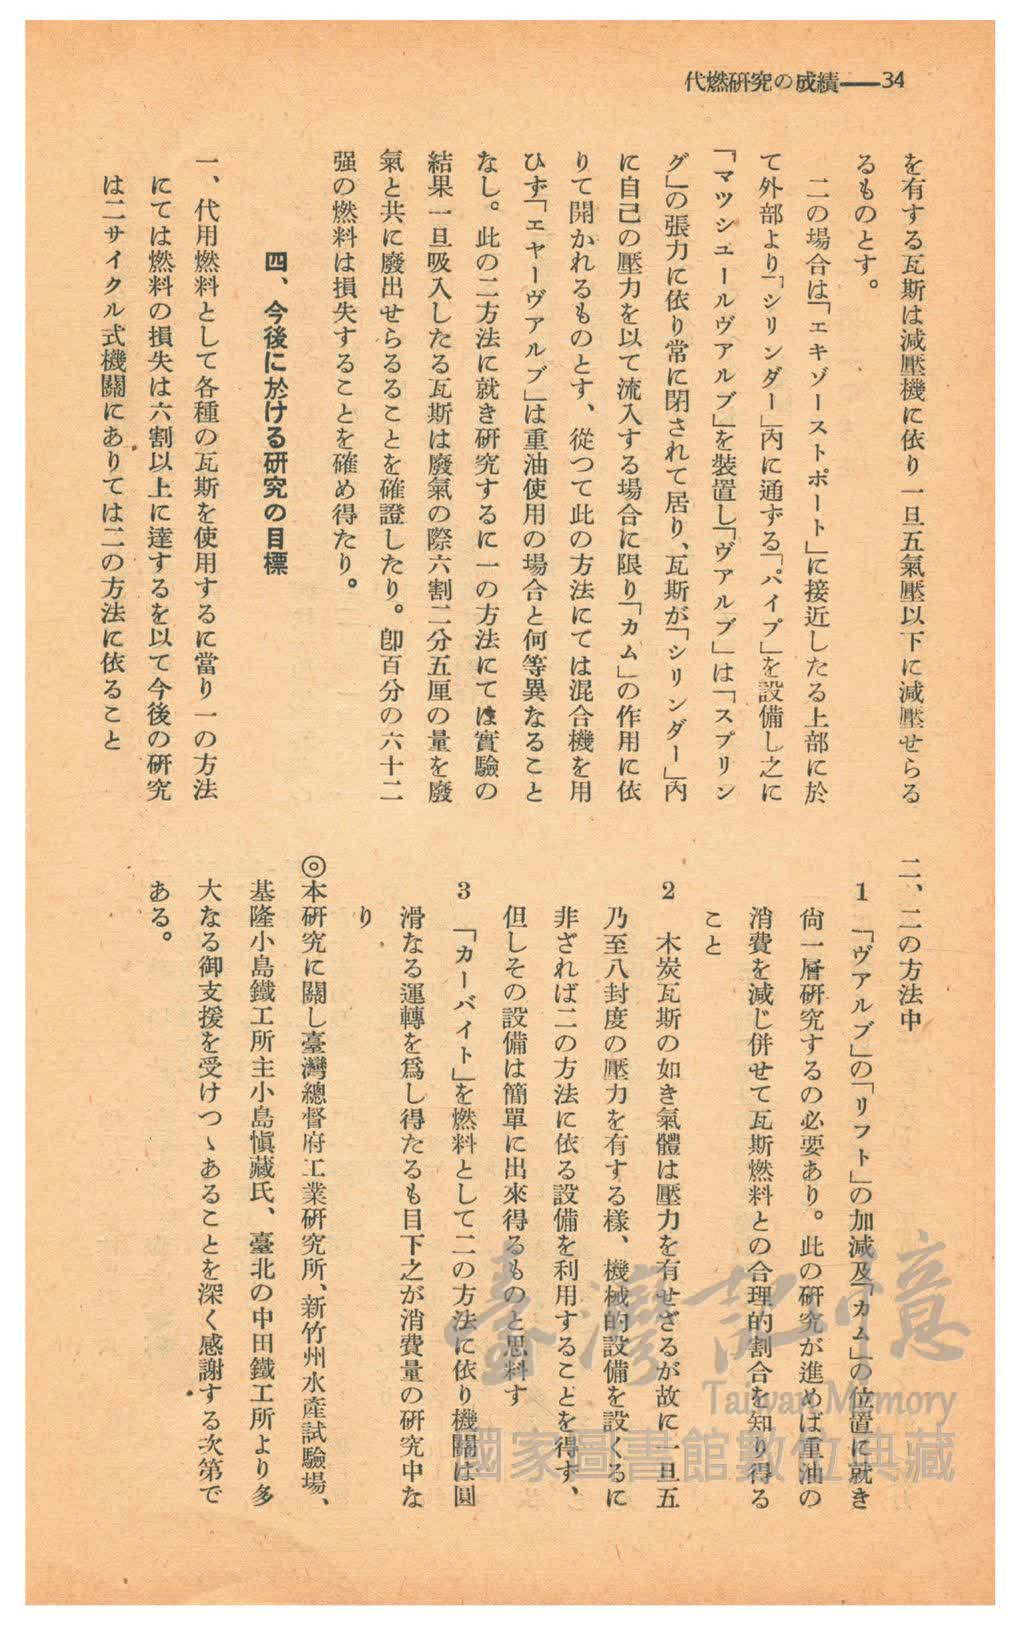 代燃硏究の成績——34
を有する瓦斯は減壓機に依り一旦五氣壓以下に減壓せらる
るものとす。
二の場合は「エキゾーストポート」に接近したる上部に於
て外部より「シリンダー」內に通ずる「パイプ」を設備し之に
「マツシエールヴアルブ」を裝置し「ヴアルブ」は「スプリン
グ」の張力に依り常に閉されて居り、瓦斯が「シリンダー」內
に自己の壓力を以て流入する場合に限り「カム」の作用に依
りて開かれるものとす、從つて此の方法にては混合機を用
ひず「エヤーヴアルブ」は重油使用の場合と何等異なること
なし。此の二方法に就き硏究するに一の方法にては實驗の
結果一旦吸入したる瓦斯は廢氣の際六割二分五厘の量を廢
氣と共に廢出せらるることを確證したり。卽百分の六十二
强の燃料は損失することを確め得たり。
四、今後に於ける硏究の目標
一、代用燃料として各種の瓦斯を使用するに當り一の方法
にては燃料の損失は六割以上に達するを以て今後の硏究
は二サイクル式機關にありては二の方法に依ること
二、二の方法中
1 「ヴアルブ」の「リフト」の加減及「カム」の位置に就き
尙一層硏究するの必要あり。此の硏究が進めば重油の
消費を減じ併せて瓦斯燃料との合理的割合を知り得る
こと
2 木炭瓦斯の如き氣體は壓力を有せざるが故に一旦五
乃至八封度の壓力を有する樣、機械的設備を設くるに
非ざれば二の方法に依る設備を利用することを得ず、
但しその設備は簡單に出來得るものと思料す
3 「カーバイト」を燃料として二の方法に依り機關は圓
滑なる運轉を爲し得たるも目下之が消費量の硏究中な
り
◎本硏究に關し臺灣總督府工業硏究所、新竹州水產試驗場、
基隆小島鐵工所主小島愼藏氏、臺北の中田鐵工所より多
大なる御支援を受けつゝあることを深く感謝する次第で
ある。
臺灣記憶
Taiwan Memory
國家圖書館數位典藏